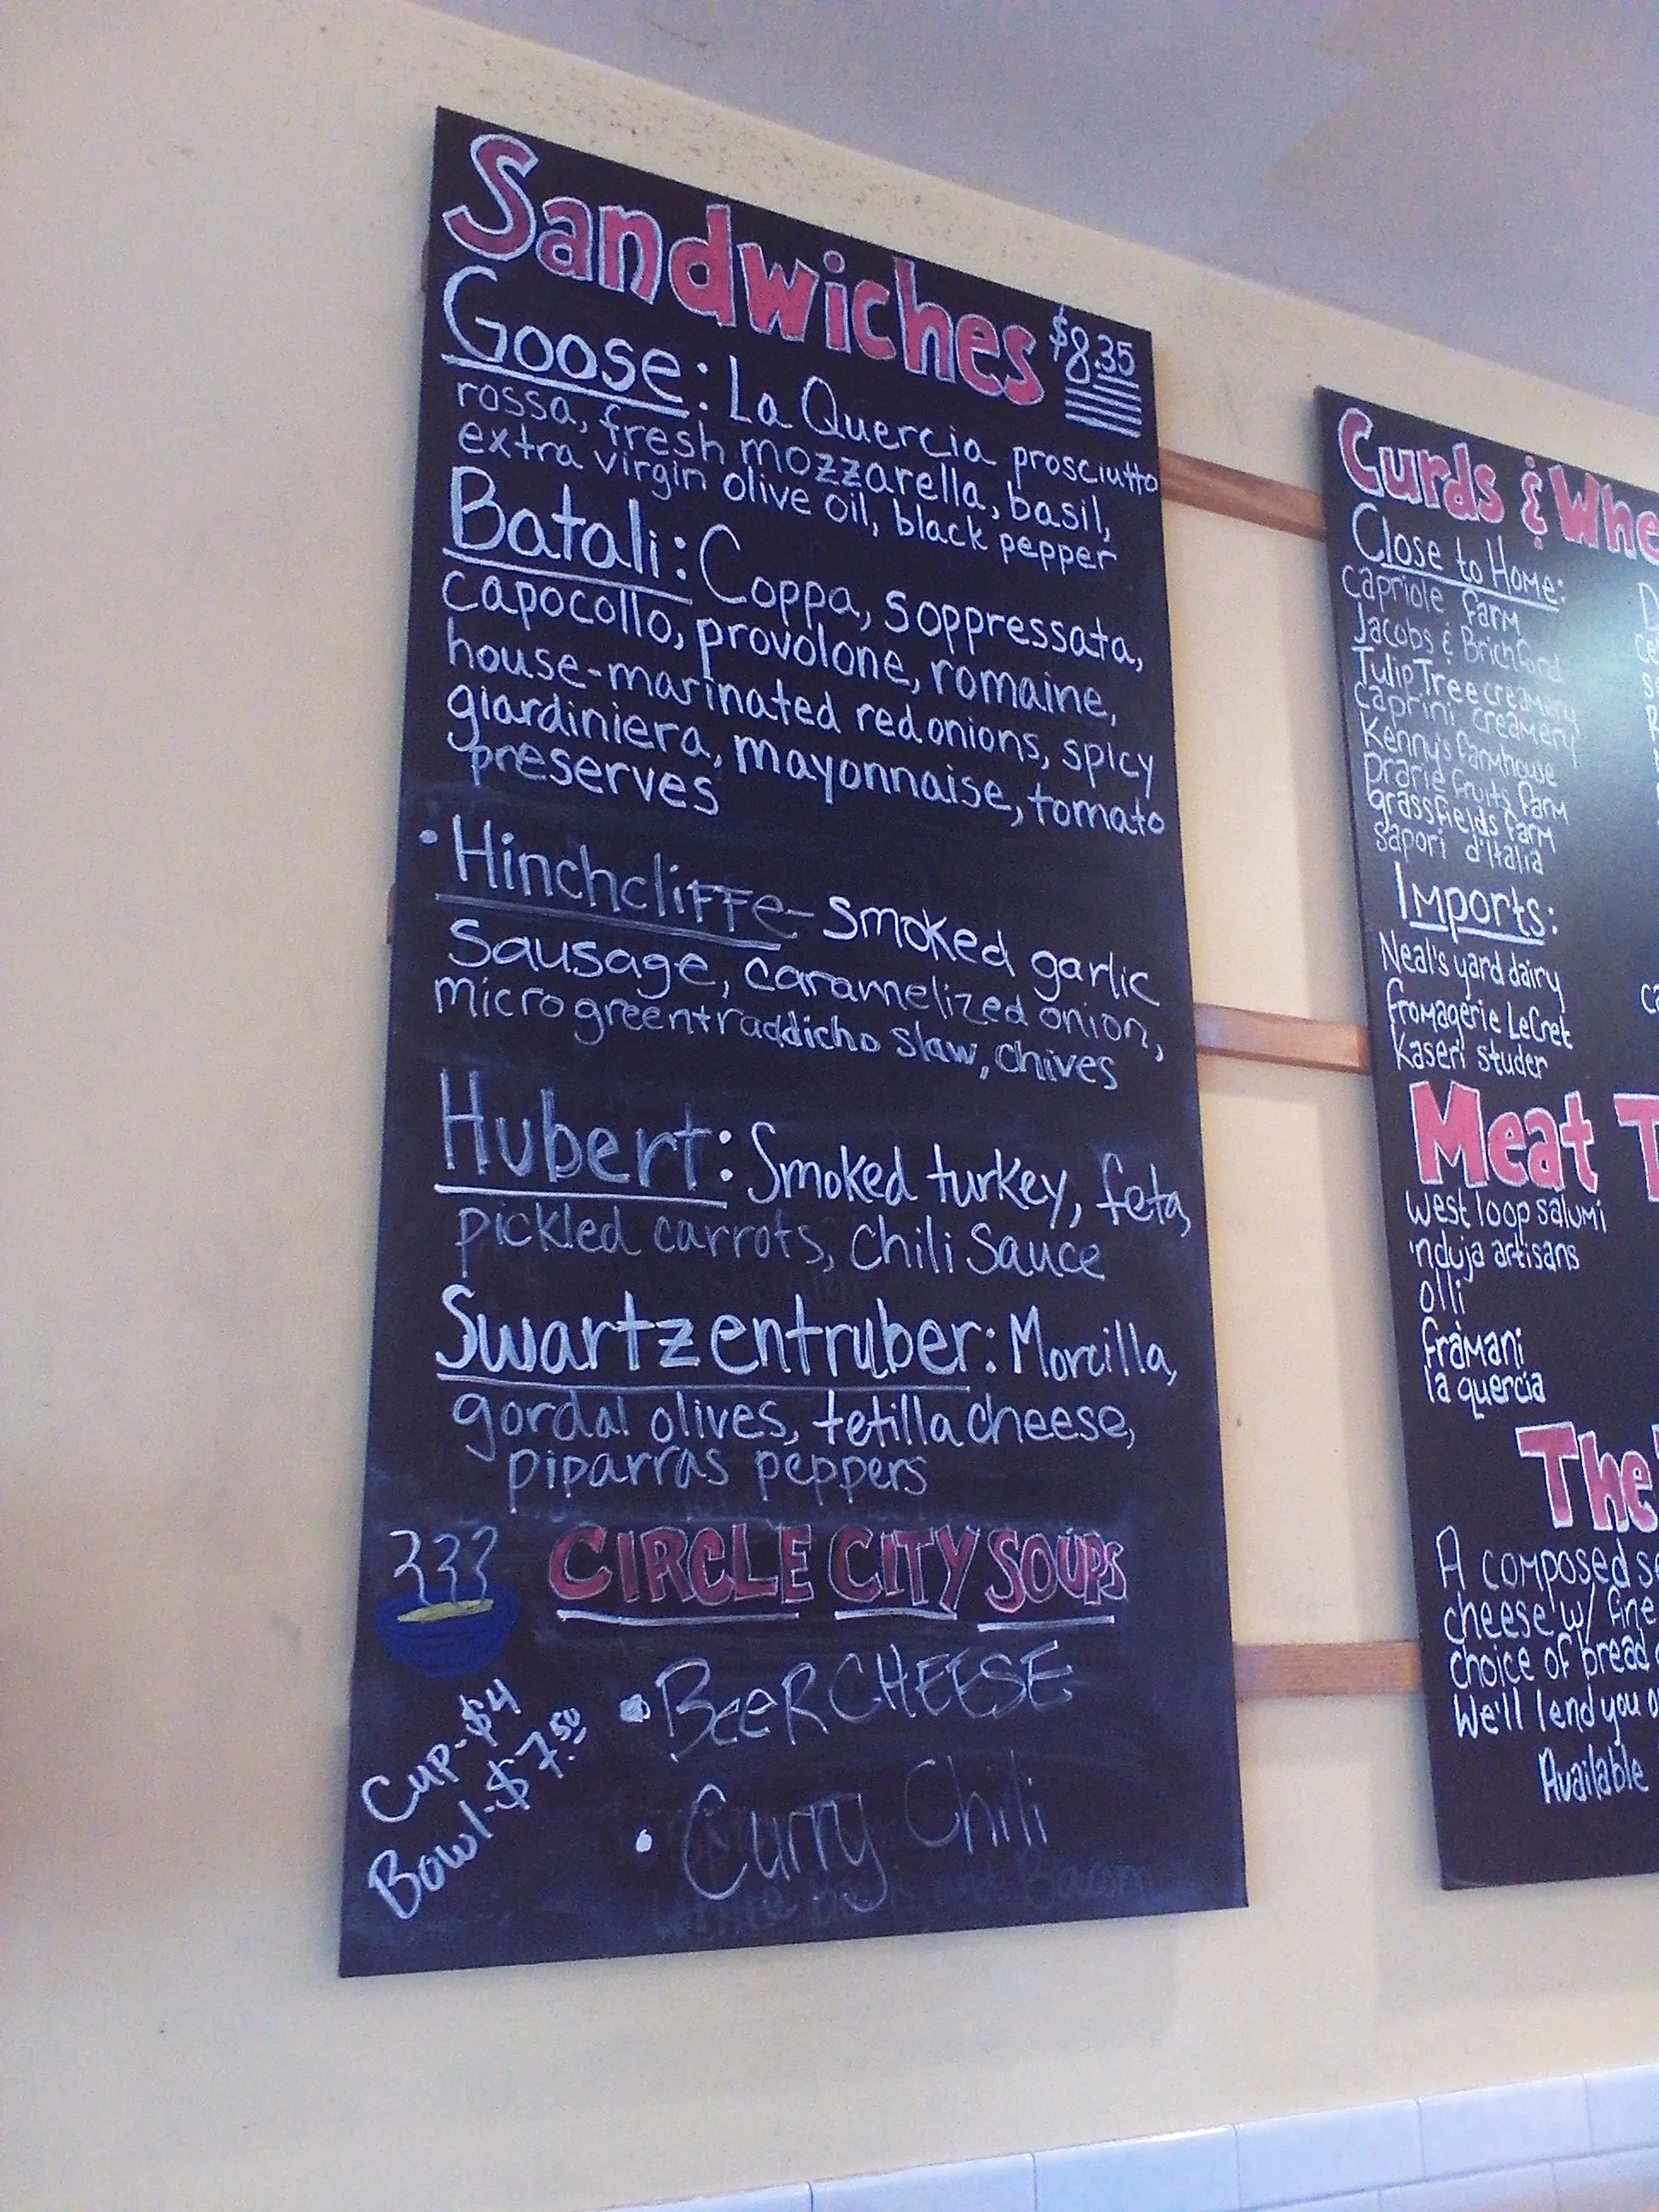 Sandwiches $8.35
Goose: La Quercia prosciutto
rossa, fresh mozzarella, basil,
extra virgin olive oil, black pepper
Batali: Coppa, Soppressata,
capocollo, provolone, romaine,
house-marinated red onions, spicy
giardiniera, mayonnaise, tomato
preserves
• Hinchcliffe - smoked garlic
Sausage, caramelized onion,
microgreen+raddicho slaw, chives
Hubert: Smoked turkey, feta,
pickled carrots, Chili Sauce
Swartzentruber: Morcilla,
gordal olives, tetilla cheese,
piparras peppers
CIRCLE CITY SOUPS
Cup-$4
Bowl-$7.50
• BeeR CHEESE
• Curry Chili
Curds & Whe
Close to Home:
capriole farm
Jacobs & Brichford
Tulip Tree creamery
Caprini creamery
Kenny's farmhouse
prarie fruits farm
grassfields farm
sapori d'Italia
Imports:
Neal's yard dairy
fromagerie LeCret
Kaseri studer
Meat T
West loop salumi
'nduja artisans
olli
framani
la quercia
The
A composed se
cheese w/ fine
choice of bread
We'll lend you
Available